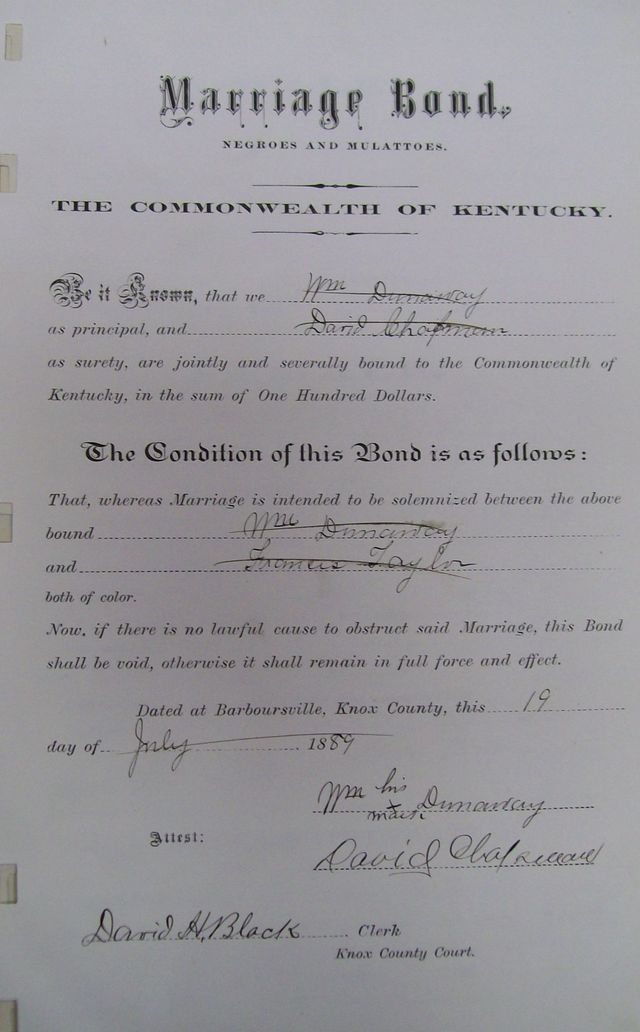 Marriage Bond.
NEGROES AND MULATTOES.
THE COMMONWEALTH OF KENTUCKY.
Be it Known, that we Wm Dunaway
as principal, and David Chapman
as surety, are jointly and severally bound to the Commonwealth of
Kentucky, in the sum of One Hundred Dollars.
The Condition of this Bond is as follows:
That, whereas Marriage is intended to be solemnized between the above
bound Wm Dunaway
and Francis Taylor
both of color.
Now, if there is no lawful cause to obstruct said Marriage, this Bond
shall be void, otherwise it shall remain in full force and effect.
Dated at Barboursville, Knox County, this 19
day of July 1889
Wm his x mark Dunaway
Attest:
David Chapman
David H. Black Clerk
Knox County Court.